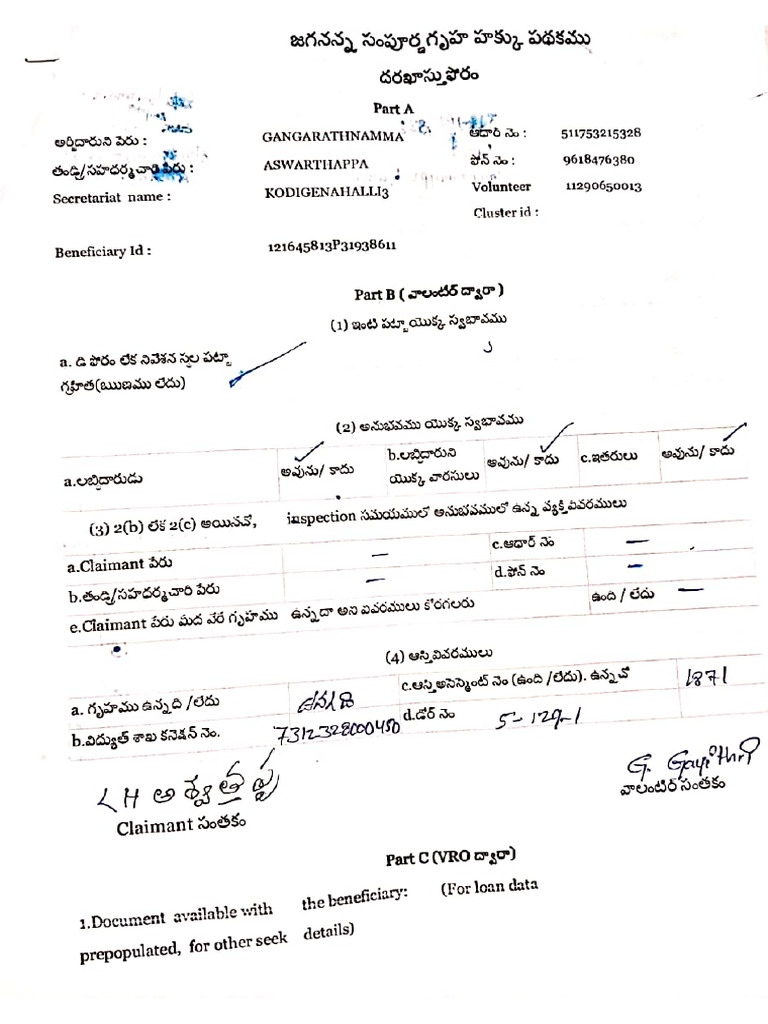 జగనన్న సంపూర్ణ గృహ హక్కు పథకము
దరఖాస్తుఫోరం
Part A
అర్జీదారుని పేరు : GANGARATHNAMMA ఆధార్ నెం : 511753215328
తండ్రి/సహధర్మచారి పేరు : ASWARTHAPPA ఫోన్ నెం : 9618476380
Secretariat name : KODIGENAHALLI3 Volunteer 11290650013
Cluster id :
Beneficiary Id : 121645813P31938611
Part B ( వాలంటీర్ ద్వారా )
(1) ఇంటి పట్టా యొక్క స్వభావము
a. డి ఫోరం లేక నివేశన స్థల పట్టా
గ్రహీత(ఋణము లేదు)
(2) అనుభవము యొక్క స్వభావము
a.లబ్ధిదారుడు అవును/ కాదు b.లబ్ధిదారుని యొక్క వారసులు అవును/ కాదు c.ఇతరులు అవును/ కాదు
(3) 2(b) లేక 2(c) అయినచో, inspection సమయములో అనుభవములో ఉన్న వ్యక్తి వివరములు
a.Claimant పేరు – c.ఆధార్ నెం –
b.తండ్రి/సహధర్మచారి పేరు – d.ఫోన్ నెం –
e.Claimant పేరు మీద వేరే గృహము ఉన్నదా అని వివరములు కోరగలరు ఉంది / లేదు –
(4) ఆస్తి వివరములు
a. గృహము ఉన్నది /లేదు ఉన్నది c.ఆస్తి అసెస్మెంట్ నెం (ఉంది /లేదు). ఉన్నచో 1871
b.విద్యుత్ శాఖ కనెక్షన్ నెం. 7312328000450 d.డోర్ నెం 5-129-1
LH అశ్వత్థప్ప G. Gayithri
Claimant సంతకం వాలంటీర్ సంతకం
Part C (VRO ద్వారా)
1.Document available with the beneficiary: (For loan data
prepopulated, for other seek details)